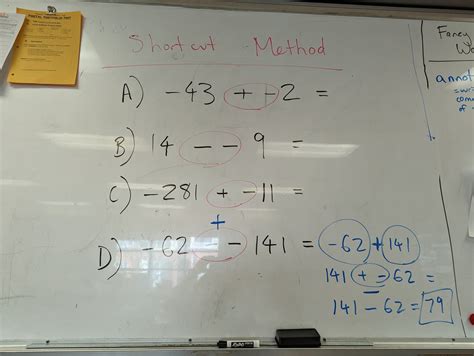 Shortcut Method
A) -43 + -2 =
B) 14 - - 9 =
C) -281 + -11 =
+
D) -62 - - 141 = -62 + 141
141 + - 62 =
-
141 - 62 = 79
Fancy
annot